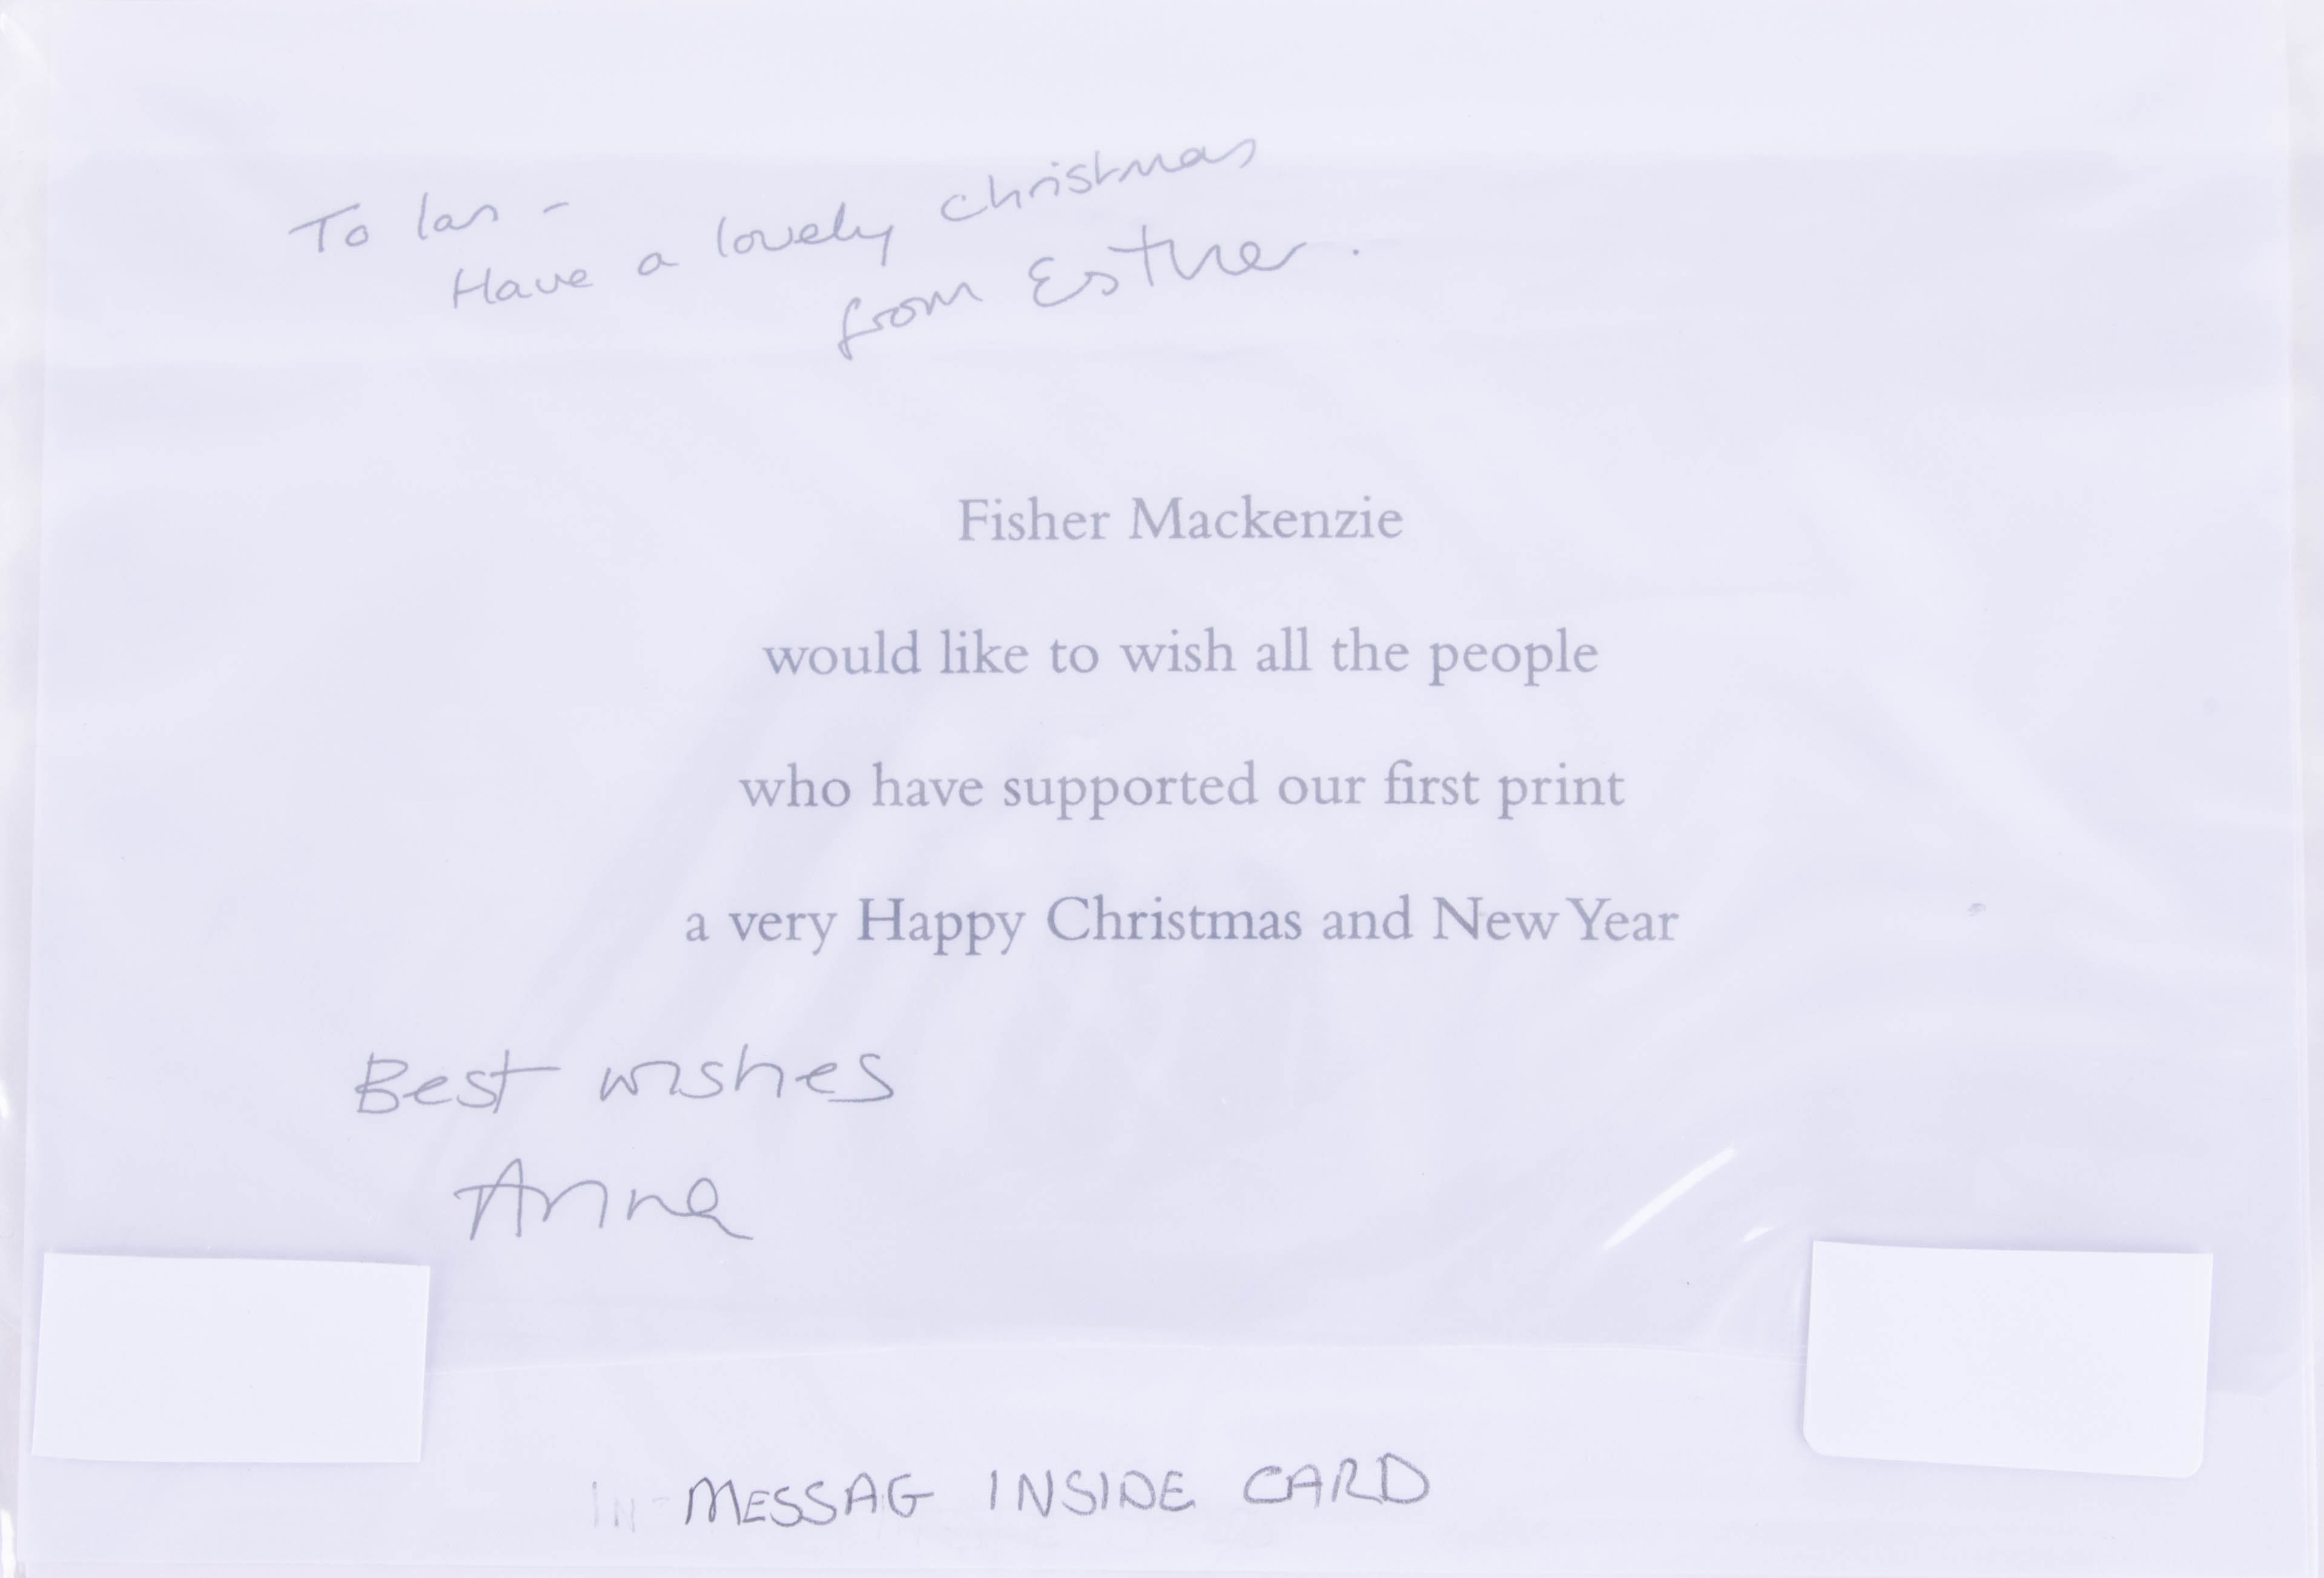 To Ian -
Have a lovely christmas
from Esther.
Fisher Mackenzie
would like to wish all the people
who have supported our first print
a very Happy Christmas and New Year
Best wishes
Anna
IN- MESSAG INSIDE CARD